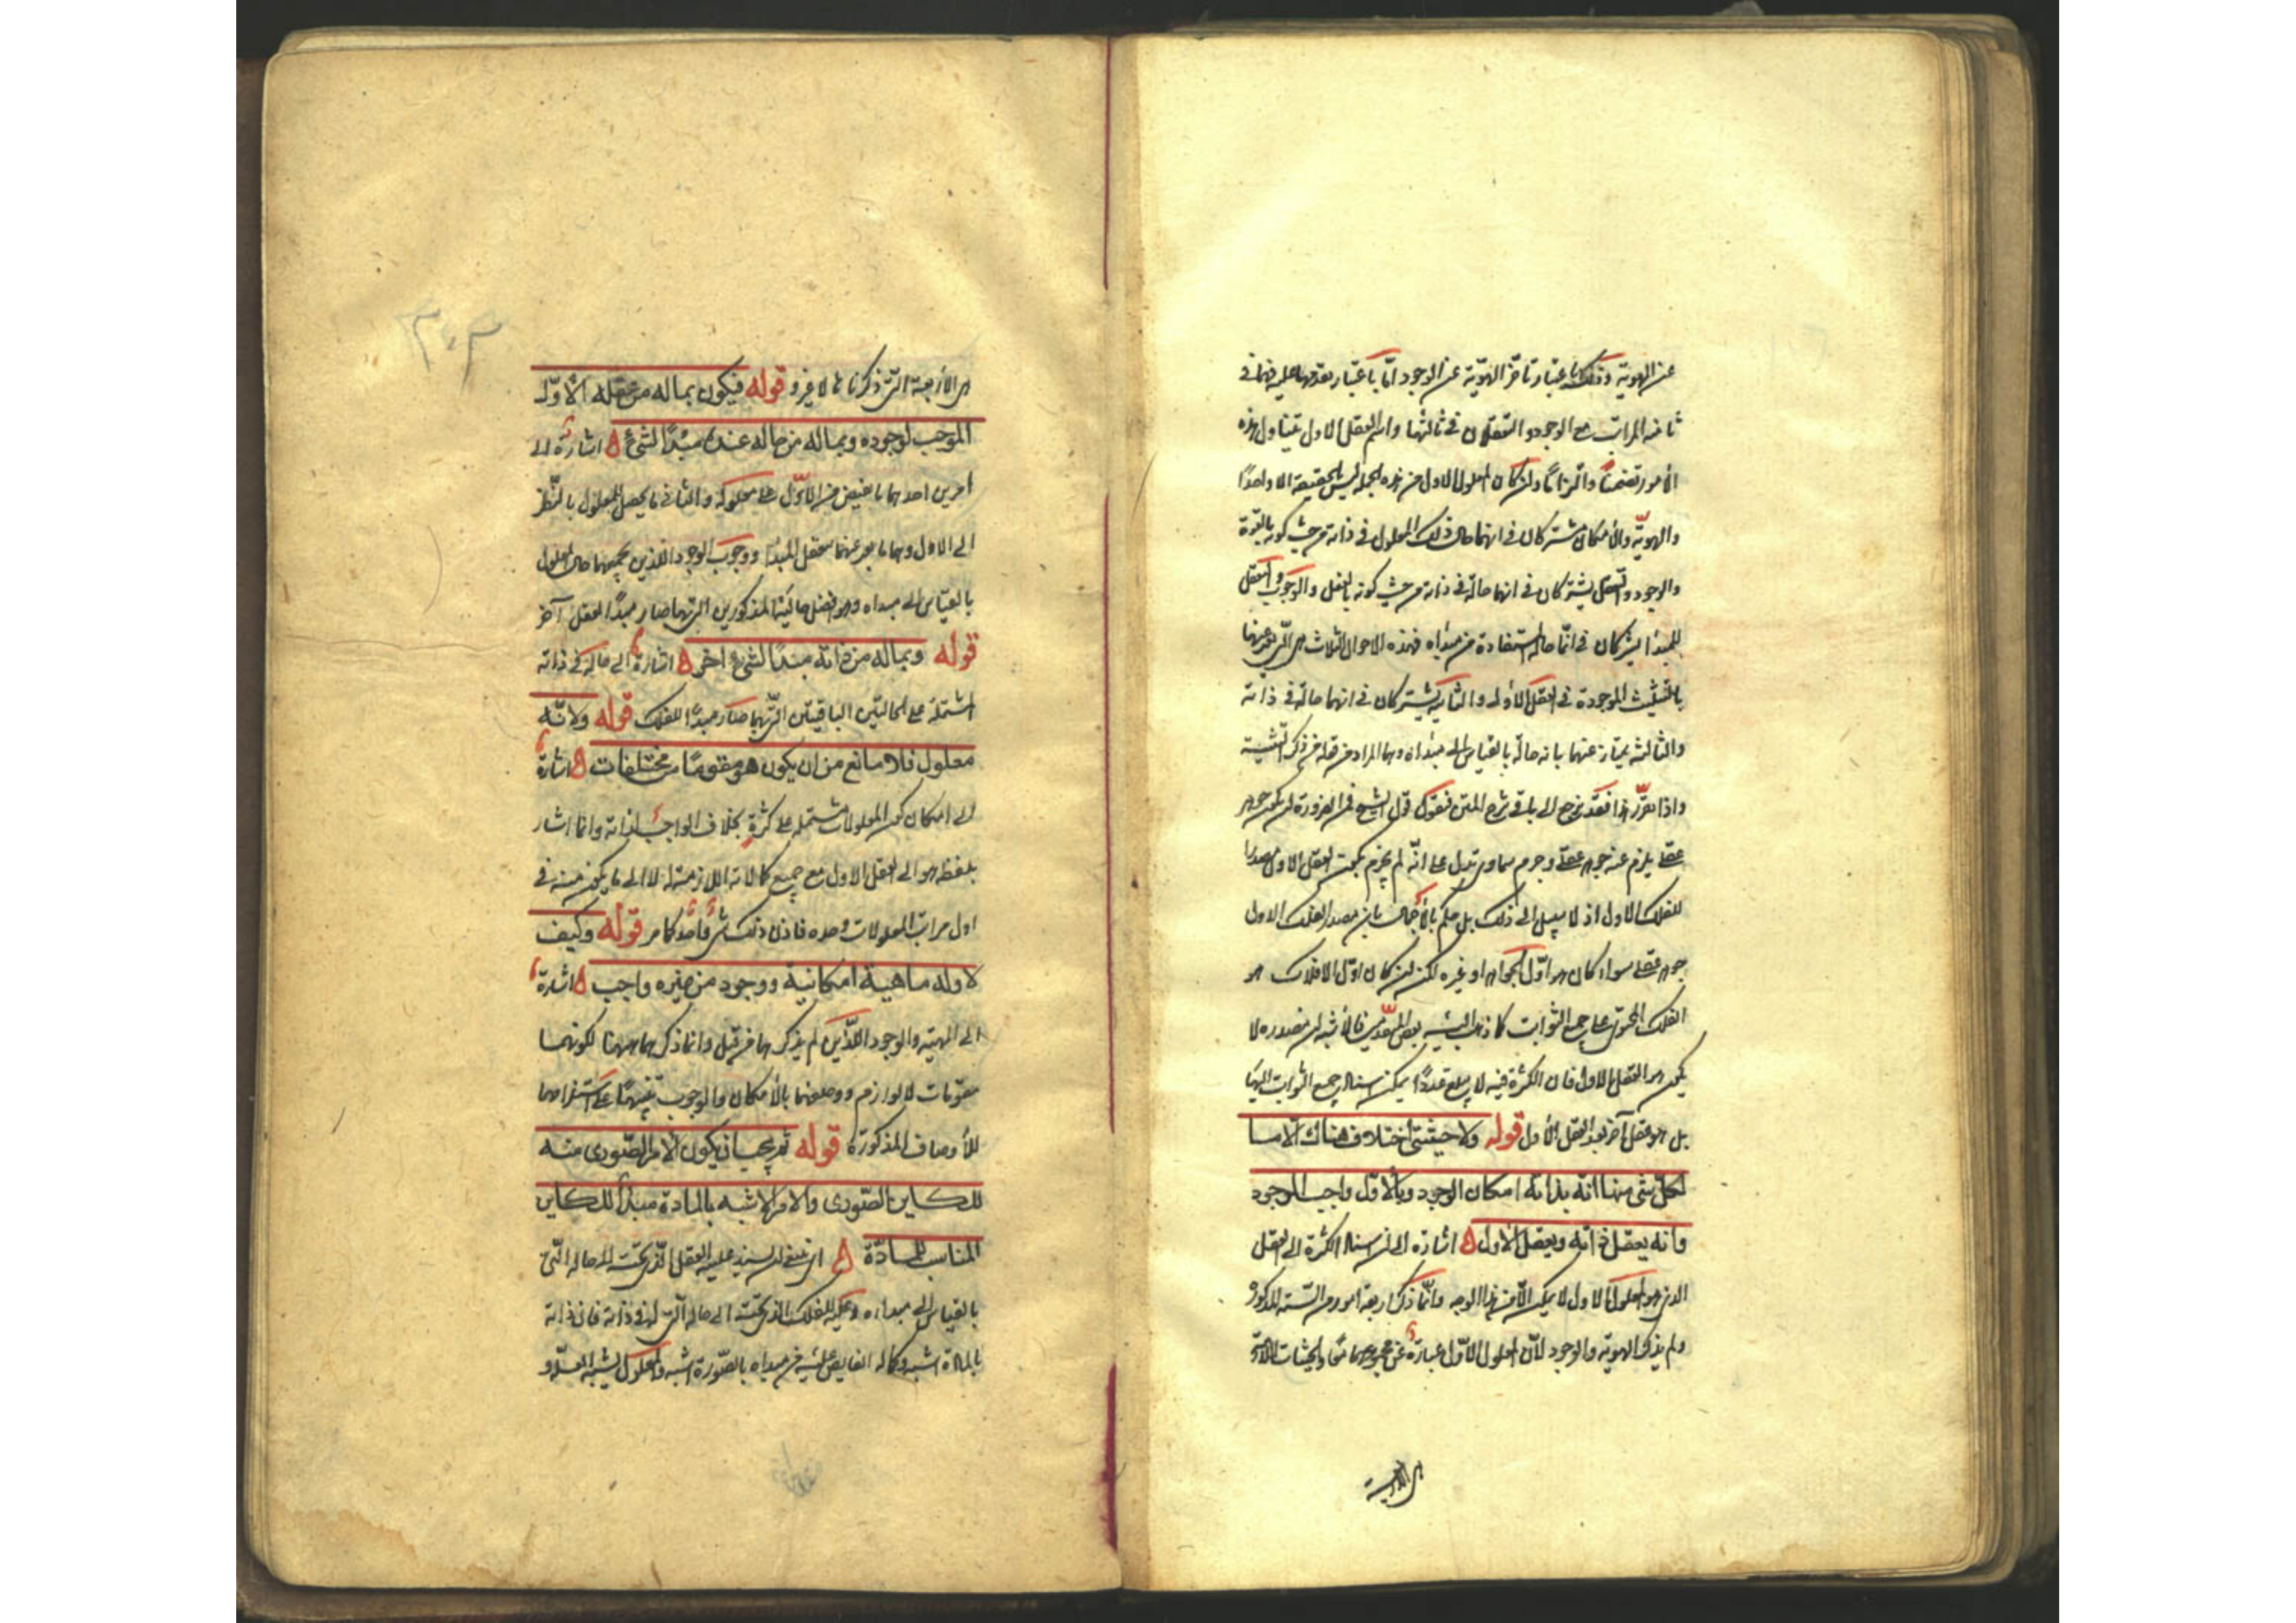 عن الهوية وذلك باعتبار تأخر الهوية عن الوجود امّا باعتبار تقدمها عليه فهما فى
ثانية المراتب مع الوجود والتعقلان فى ثالثتها واسم العقل الاول يتناول هذه
الأمور تضمنًا والتزامًا وان كان المعلول الاول من هذه الجملة ليس بالحقيقة الا واحدًا
والهويّة والأمكان مشتركان فى انهما حال ذلك المعلول فى ذاته من حيث كونه بالقوة
والوجود وتعقل يشتركان فى انهما حاله فى ذاته من حيث كونه بالفعل والوجوب والتعقل
للمبدأ يشتركان فى انّها حاله المستفادة من مبدأه فهذه الاحوال الثلاث هى التى عبر عنها
بالتثليث الموجودة فى العقل الأول والثانية يشتركان فى انهما حاله فى ذاته
والثالثة يمتاز عنهما بانه حاله بالقياس الى مبدأه وهما المراد من قوله من ذكر التثنية
واذا تقرّر هذا فقد نرجع الى باقى شرح المتن فنقول قول الشيخ فمن الضرورة ان يكون جوهر
عقلى يلزم عنه جوهر عقلى وجرم سماوى تدل على انّه لم يجزم بكون العقل الاول مصدرا
للفلك الاول اذ لا سبيل الى ذلك بل حكم بالأجمال بان مصدر الفلك الاول
جوهر عقلى سواء كان هو اوّل الجواهر او غيره لكن ان كان اوّل الافلاك هو
الفلك المحتوى على جميع الثوابت كما ذهب اليه بعض المتقدّمين فالأشبه ان مصدره لا
يكون هو العقل الاول فان الكثرة فيه لا يبلغ عددًا يمكن اسناد جميع الثوابت اليها
بل هو عقل آخر بعد العقل الأول قوله ولا حيثيتى اختلاف هناك الا ما
لكل شى منها انه بذاته امكان الوجود وبالأول واجب الوجود
وانه يعقل ذاته ويعقل الأول ٥ اشارة الى ان اسناد الكثرة الى العقل
الذى هو المعلول الاول لا يمكن الّا من هذا الوجه وانّما ذكر اربعة امور من الستة المذكورة
ولم يذكر الهوية والوجود لأن المعلول الأوّل عبارة عن مجموعهما معًا والحيثيات اللازمة
هى الأربعة
هى الأربعة التى ذكرناها لا غير و قوله فيكون بماله من عقله الأوّل
الموجب لوجوده وبماله من حاله عنده مبدأ لشئ ٥ اشارة الى
امرين احدهما ما يفيض من الأوّل على معلوله والثانى ما يحصل للمعلول بالنّظر
الى الاول وهما ما يعبر عنهما بتعقل المبدأ ووجوب الوجود اللذين يجمعهما حال المعلول
بالقياس الى مبدأه وهو افضل حاليه المذكورين التى بها صار مبدأ لعقل آخر
قوله وبماله من ذاته مبدأ لشئ اخر ٥ اشارة الى حاله فى ذاته
اشتملة على الحالتين الباقيتين التى بهما صار مبدأ للفلك قوله ولانّه
معلول فلا مانع من ان يكون هو مقومًا من مختلفات ٥ اشارة
الى امكان كون المعلولات مشتملة على كثرة بخلاف الواجب لذاته وانما اشار
بلفظة هو الى العقل الاول مع جميع كمالاته اللازمة له لا الى ما يكون منه فى
اول مراتب المعلولات وحده فاذن ذلك شئ واحد كما مر قوله وكيف
لا وله ماهية امكانية ووجود من غيره واجب ٥ اشارة
الى الهوية والوجود اللّذين لم يذكرهما من قبل وانما ذكرهما ههنا لكونهما
مقومات لا لوازم ووصفهما بالأمكان والوجوب تنبيهًا على استلزامهما
للأوصاف المذكورة قوله ثم يجب ان يكون الأمر الصّورى منه
للكاين الصّورى والامر الاشبه بالمادة مبدأ للكاين
المناسب للمادّة ٥ اى ينبغى ان يسند علية العقل الذى تحته الى حاله التى
بالقياس الى مبدأه وعلية الفلك الذى تحته الى حاله التى له فى ذاته فان ذاته
بالمادة اشبه وكماله الفايض عليه من مبدأه بالصّورة اشبه والمعلول يشبه العلة و